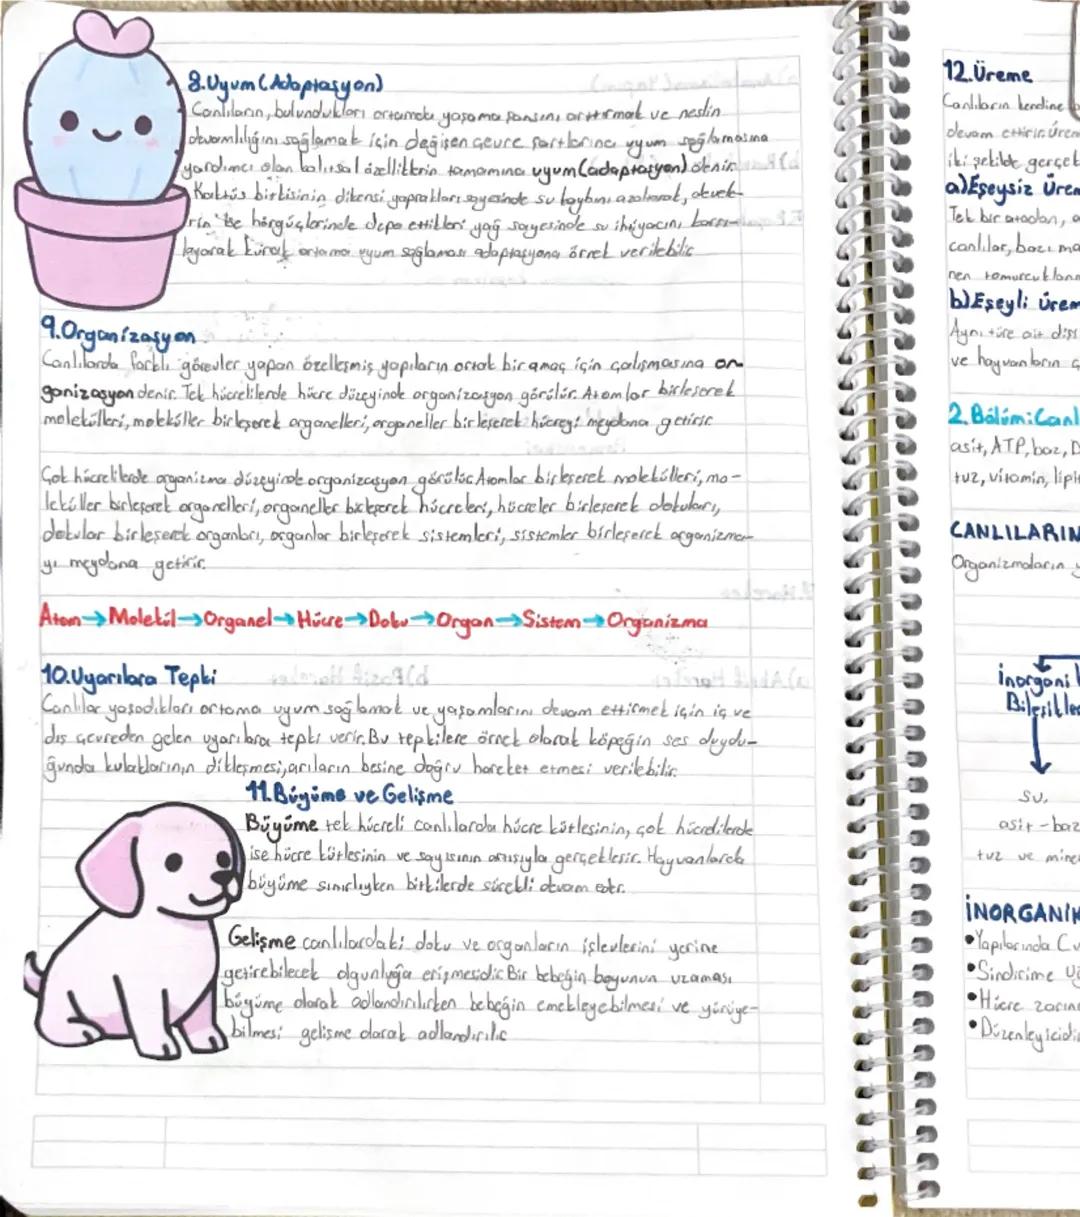 8.Uyum (Adaptasyon)
Canlıların, bulundukları ortamda yaşama şansını arttırmak ve neslin
devamlılığını sağlamak için değişen çevre şartlarına uyum sağlamasına
yardımcı olan kalıtsal özelliklerin tamamına uyum(adaptasyon) denir.
Kaktüs bitkisinin dikensi yaprakları sayesinde su kaybını azaltarak, devele-
rin ise hörgüçlerinde depo ettikleri yağ sayesinde su ihtiyacını karşı-
layarak kurak ortama uyum sağlaması adaptasyona örnek verilebilir.
9.Organizasyon
Canlılarda farklı görevler yapan özelleşmiş yapıların ortak bir amaç için çalışmasına or-
ganizasyon denir. Tek hücrelilerde hücre düzeyinde organizasyon görülür. Atomlar birleşerek
molekülleri, moleküller birleşerek organelleri, organeller birleşerek hücreyi meydana getirir.
Çok hücrelilerde organizma düzeyinde organizasyon görülür. Atomlar birleşerek molekülleri, mo-
leküller birleşerek organelleri, organeller birleşerek hücreleri, hücreler birleşerek dokuları,
dokular birleşerek organları, organlar birleşerek sistemleri, sistemler birleşerek organizma-
yı meydana getirir.
Atom→Molekül→Organel→Hücre→Doku→Organ→Sistem→Organizma
10.Uyarılara Tepki
Canlılar yaşadıkları ortama uyum sağlamak ve yaşamlarını devam ettirmek için iç ve
dış çevreden gelen uyarılara tepki verir. Bu tepkilere örnek olarak köpeğin ses duydu-
ğunda kulaklarının dikleşmesi, arıların besine doğru hareket etmesi verilebilir.
11.Büyüme ve Gelişme
Büyüme tek hücreli canlılarda hücre kütlesinin, çok hücrelilerde
ise hücre kütlesinin ve sayısının artışıyla gerçekleşir. Hayvanlarda
büyüme sınırlıyken bitkilerde sürekli devam eder.
Gelişme canlılardaki doku ve organların işlevlerini yerine
getirebilecek olgunluğa erişmesidir. Bir bebeğin boyunun uzaması
büyüme olarak adlandırılırken bebeğin emekleyebilmesi ve yürüye-
bilmesi gelişme olarak adlandırılır.
12.Üreme
Canlıların kendine
devam ettirir. Ürem
iki şekilde gerçek
a)Eşeysiz Ürem
Tek bir atadan, o
canlılar, bazı ma
nen tomurcuklanm
b)Eşeyli Ürem
Aynı türe ait dişi
ve hayvanların ç
2.Bölüm:Canl
asit, ATP, baz, D
tuz, vitamin, lipit
CANLILARIN
Organizmaların y
inorgani
Bileşikler
su,
asit-baz
tuz ve miner
İNORGANİK
•Yapılarında C v
•Sindirime uğ
•Hücre zarın
•Düzenleyicidir